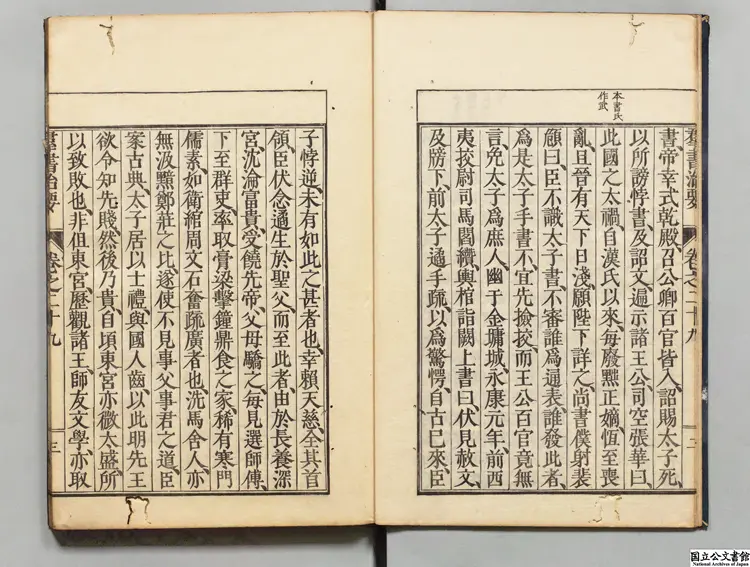 本書氏
作武
書、帝幸式乾殿、召公卿百官皆入、詔賜太子死、
以所謗悖書、及詔文、遍示諸王公、司空張華曰、
此國之太禍、自漢氏以來、每廢黜正嫡、恆至喪
亂、且晉有天下日淺、願陛下詳之、尚書僕射裴
頠曰、臣不識太子書、不審誰爲通表、誰發此者、
爲是太子手書不、宜先撿挍、而王公百官竟無
言、免太子爲庶人、幽于金墉城、永康元年、前西
夷挍尉司馬閻纘、輿棺詣闕上書曰、伏見赦文、
及牓下、前太子遹手疏、以爲驚愕、自古已來、臣
群書治要
卷之二十九
三
子悖逆、未有如此之甚者也、幸賴天慈、全其首
領、臣伏念遹生於聖父、而至此者、由於長養深
宮、沈淪富貴、受饒先帝、父母驕之、每見選師傅、
下至群吏、率取膏粱擊鐘鼎食之家、稀有寒門
儒素、如衛綰周文石奮疏廣者也、洗馬舍人、亦
無汲黯鄭莊之比、遂使不見事父事君之道、臣
案古典、太子居以士禮、與國人齒、以此明先王
欲令知先賤然後乃貴、自頃東宮亦微太盛、所
以致敗也、非但東宮、歷觀諸王、師友文學、亦取
群書治要
卷之二十九
三
国立公文書館
National Archives of Japan